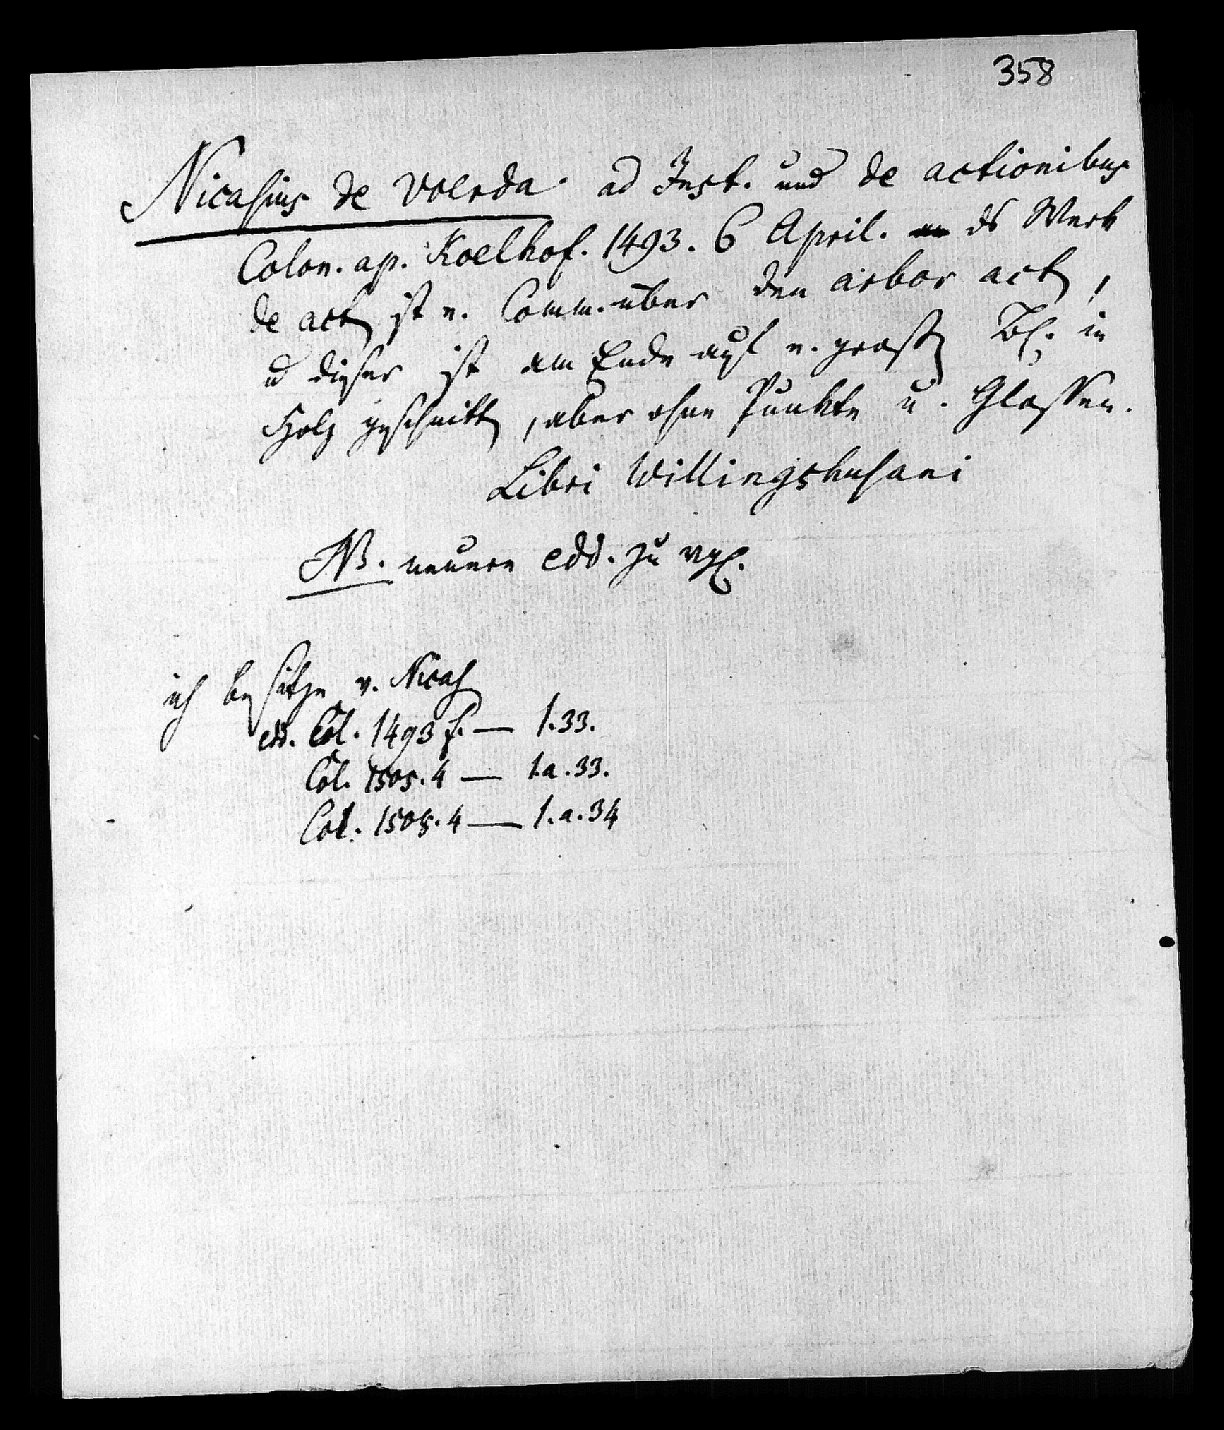 358
Nicasius de Voerda. ad Inst. und de actionibus
Colon. ap. Koelhof. 1493. 6 April. ds Werk
de act ist e. Comm. über den arbor act,
u dieser ist am Ende auf e. groß Bl. in
Holz geschnitt, aber ohne Punkte u. Glossen.
Libri Willingshusani
NB. neuere edd. zu vgl.
ich besitze v. Nicas
edd. Col. 1493 f. — 1.33.
Col. 1505. 4 — 1.a.33.
Col. 1508. 4 — 1.a.34